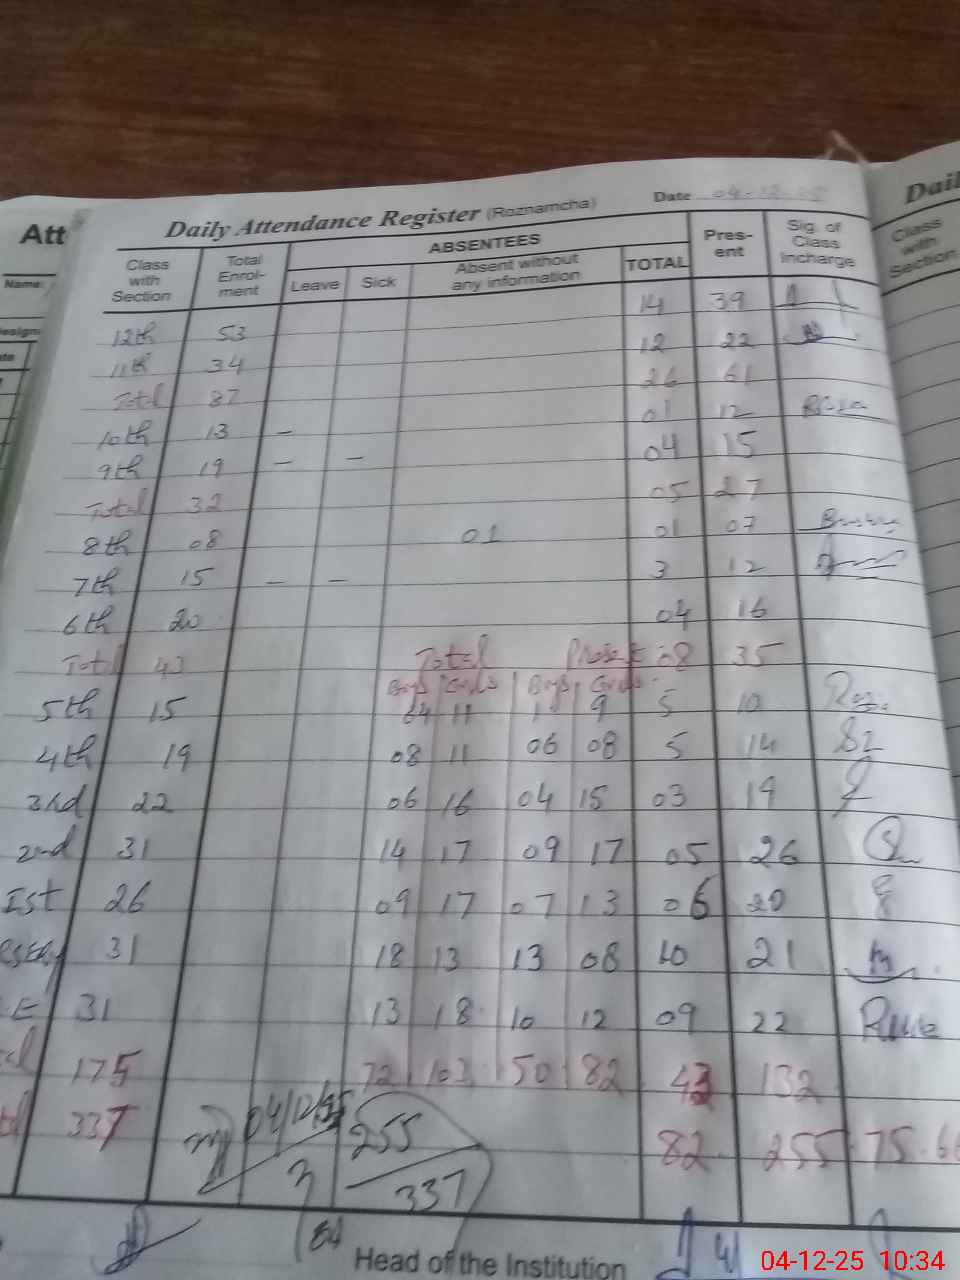 Daily Attendance Register (Roznamcha) Date 04-12-25
Class with Section Total Enrol-ment ABSENTEES Leave Sick Absent without any information TOTAL Pres-ent Sig. of Class Incharge
12th 53 14 39
11th 34 12 22
Total 87 26 61
10th 13 – 01 12
9th 19 – – 04 15
Total 32 05 27
8th 08 01 01 07
7th 15 – – 3 12
6th 20 04 16
Total 43 Total Present 08 35
Boys Girls Boys Girls
5th 15 04 11 1 9 5 10
4th 19 08 11 06 08 5 14
3rd 22 06 16 04 15 03 19
2nd 31 14 17 09 17 05 26
Ist 26 09 17 07 13 06 20
31 18 13 13 08 10 21
31 13 18 10 12 09 22
175 72 103 50 82 43 132
337 82 255 75.6
04/12/25
255
337
Head of the Institution
Att
Name:
Dail
Class
with
Section
04-12-25 10:34